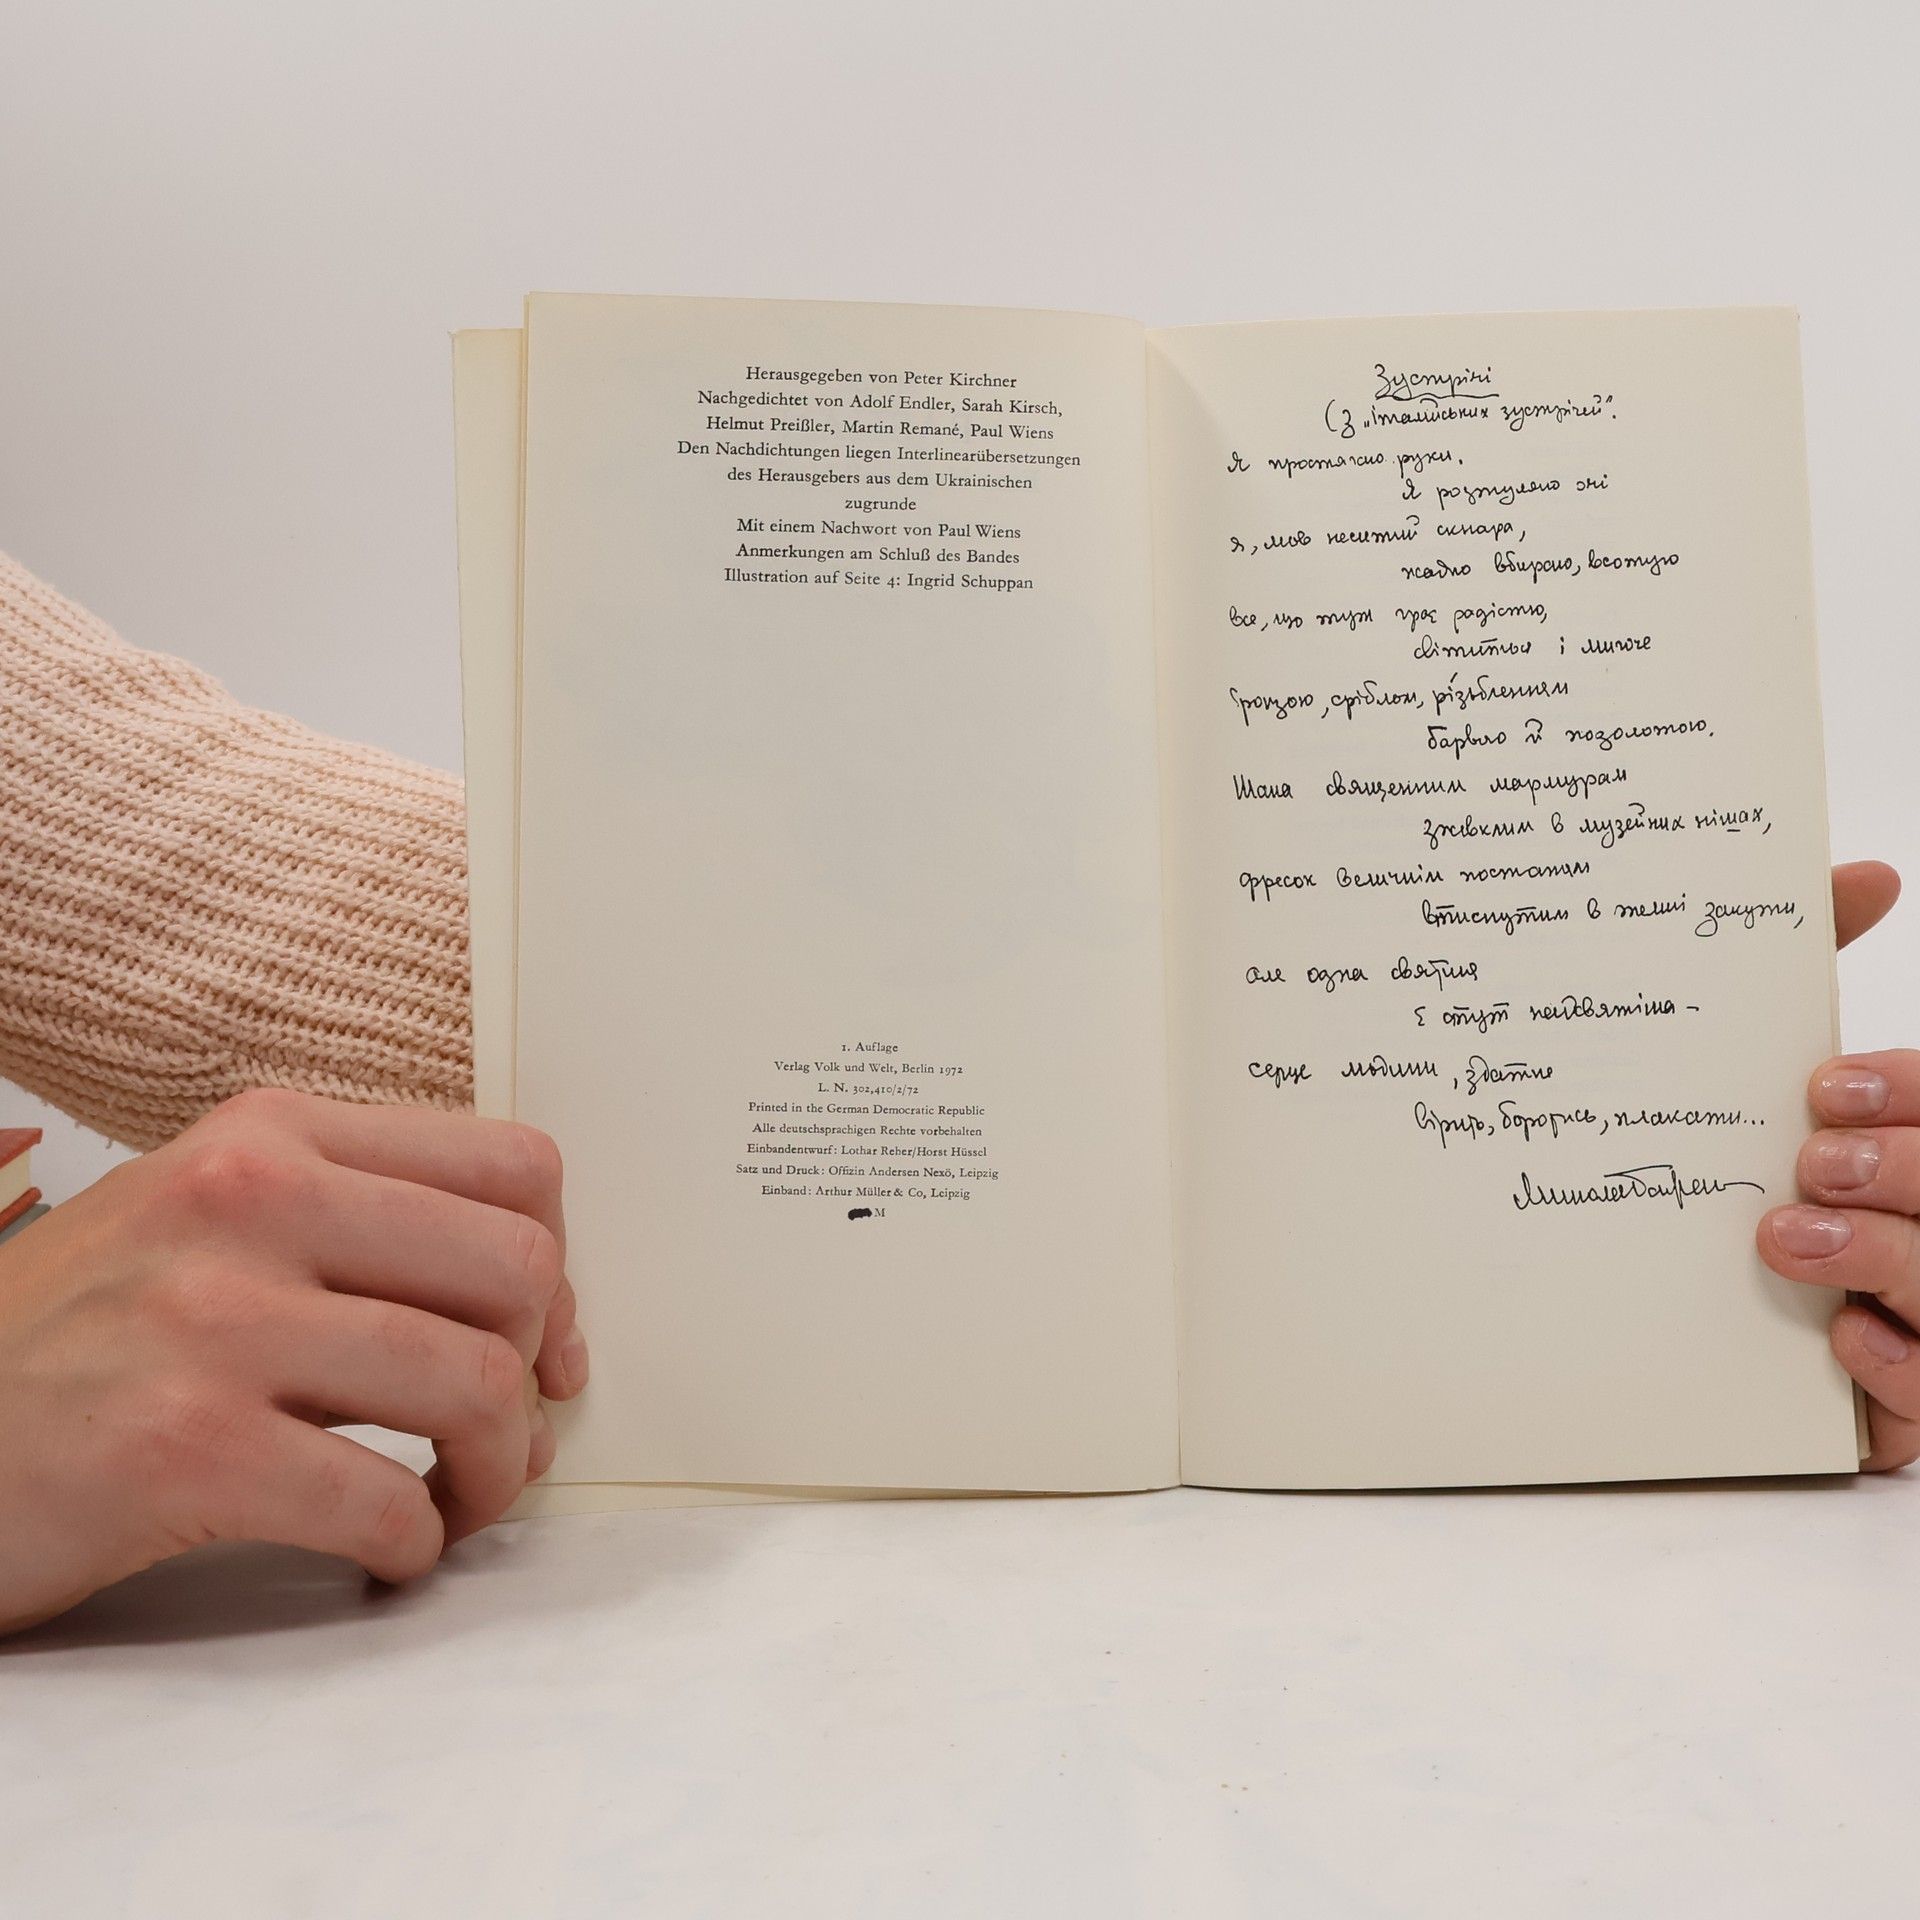 Herausgegeben von Peter Kirchner
Nachgedichtet von Adolf Endler, Sarah Kirsch,
Helmut Preißler, Martin Remané, Paul Wiens
Den Nachdichtungen liegen Interlinearübersetzungen
des Herausgebers aus dem Ukrainischen
zugrunde
Mit einem Nachwort von Paul Wiens
Anmerkungen am Schluß des Bandes
Illustration auf Seite 4: Ingrid Schuppan
1. Auflage
Verlag Volk und Welt, Berlin 1972
L. N. 302,410/2/72
Printed in the German Democratic Republic
Alle deutschsprachigen Rechte vorbehalten
Einbandentwurf: Lothar Reher/Horst Hüssel
Satz und Druck: Offizin Andersen Nexö, Leipzig
Einband: Arthur Müller & Co, Leipzig
M
Зустрічі
(З „італійських зустрічей".
Я простягаю руки.
Я розтуляю очі
я, мов неситий скнара,
жадно вбираю, всотую
все, що тут грає радістю,
світиться і
бронзою, сріблом, різьбленням
барвою й позолотою.
Шана священним мармурам
зжовклим в музейних нішах,
фресок величнім постатям
втиснутим в темні закути,
але одна святиня
є тут найсвятіша –
серце людини, здатне
вірить, боротись, плакати...